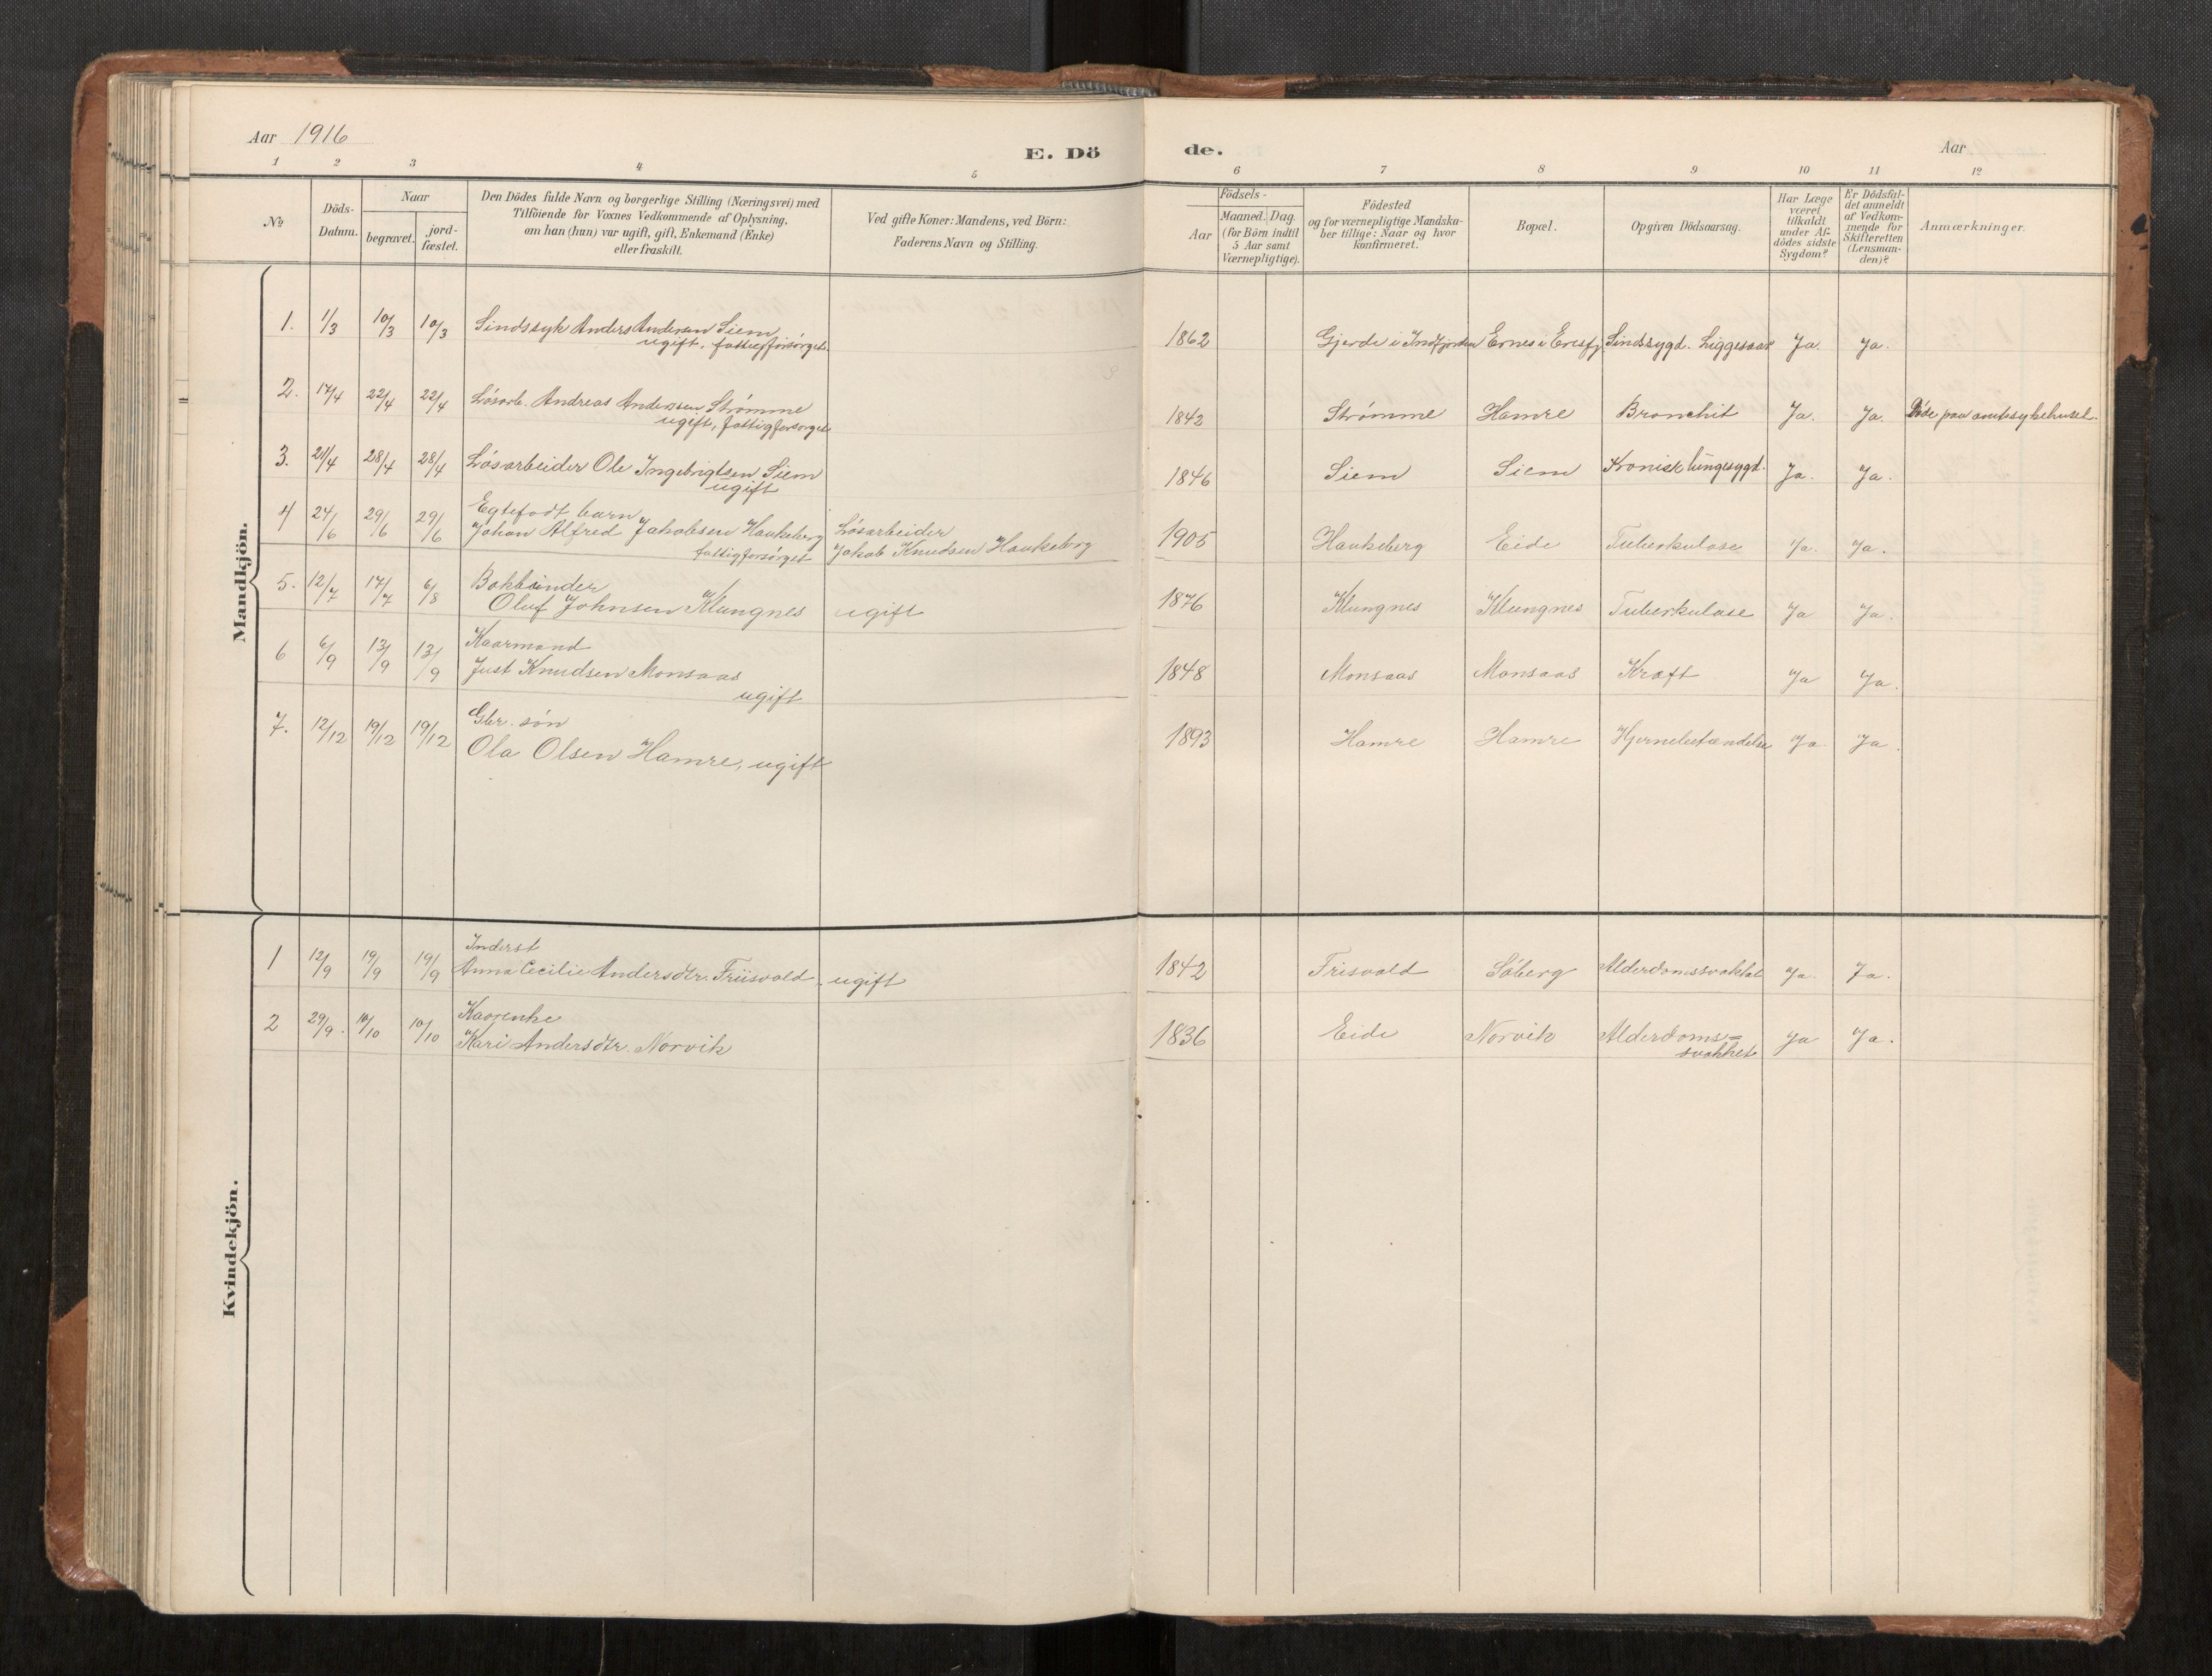 Aar 1916
E. Dö
de.
Aar
1 2 3 4 5 6 7 8 9 10 11 12
№
Döds-
Datum.
Naar
begravet.
jord-
fæstet.
Den Dödes fulde Navn og borgerlige Stilling (Næringsvei) med
Tilföiende for Voxnes Vedkommende af Oplysning,
om han (hun) var ugift, gift, Enkemand (Enke)
eller fraskilt.
Ved gifte Koner: Mandens, ved Börn:
Faderens Navn og Stilling.
Födsels-
Aar
Maaned. Dag.
(for Börn indtil
5 Aar samt
Værnepligtige).
Födested
og for værnepligtige Mandska-
ber tillige: Naar og hvor
konfirmeret.
Bopæl.
Opgiven Dödsaarsag.
Har Læge
været
tilkaldt
under Af-
dödes sidste
Sygdom?
Er Dödsfal-
det anmeldt
af Vedkom-
mende for
Skifteretten
(Lensman-
den)?
Anmærkninger.
Mandkjön.
1. 1/3 10/3 10/3 Sindssyk Anders Andersen Siem 1862 Gjerde i Indfjorden Ernes i Eresfj. Sindsygd. Liggesaar Ja. Ja.
ugift, fattigforsørget.
2. 17/4 22/4 22/4 Løsarb. Andreas Anderssen Strømme 1842 Strømme Hamre Bronchit Ja. Ja. Døde paa amtssykehuset.
ugift, fattigforsørget
3. 21/4 28/4 28/4 Løsarbeider Ole Ingebrigtsen Siem 1846 Siem Siem Kronisk lungesygd. Ja. Ja.
ugift
4 24/6 29/6 29/6 Egtefødt barn
Johan Alfred Jakobsen Haukeberg Løsarbeider 1905 Haukeberg Eide Tuberkulose Ja. Ja.
fattigforsørget Jakob Knudsen Haukeberg
5. 12/7 17/7 6/8 Bokbinder
Oluf Johnsen Klungnes ugift 1876 Klungnes Klungnes Tuberkulose Ja Ja.
6 6/9 13/9 13/9 Kaarmand
Just Knudsen Monsaas 1848 Monsaas Monsaas Kræft Ja Ja.
ugift
7. 12/12 19/12 19/12 Gbr. søn
Ola Olsen Hamre, ugift 1893 Hamre Hamre Hjernebetændelse Ja Ja.
Kvindekjön.
1 12/9 19/9 19/9 Inderst
Anna Cecilie Andersdtr. Friisvold, ugift 1842 Frisvold Søberg Alderdomssvakhet Ja. Ja.
2 29/9. 10/10 10/10 Kaarenke
Kari Andersdtr. Norvik 1836 Eide Norvik Alderdoms=
svakhet Ja Ja.